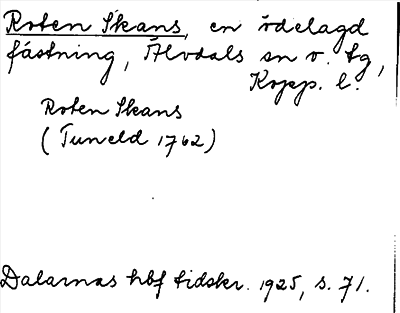 Roten Skans, en ödelagd
fästning, Älvdals sn o. tg,
Kopp. l.
Roten Skans
(Tuneld 1762)
Dalarnas hbf tidskr. 1925, s. 71.